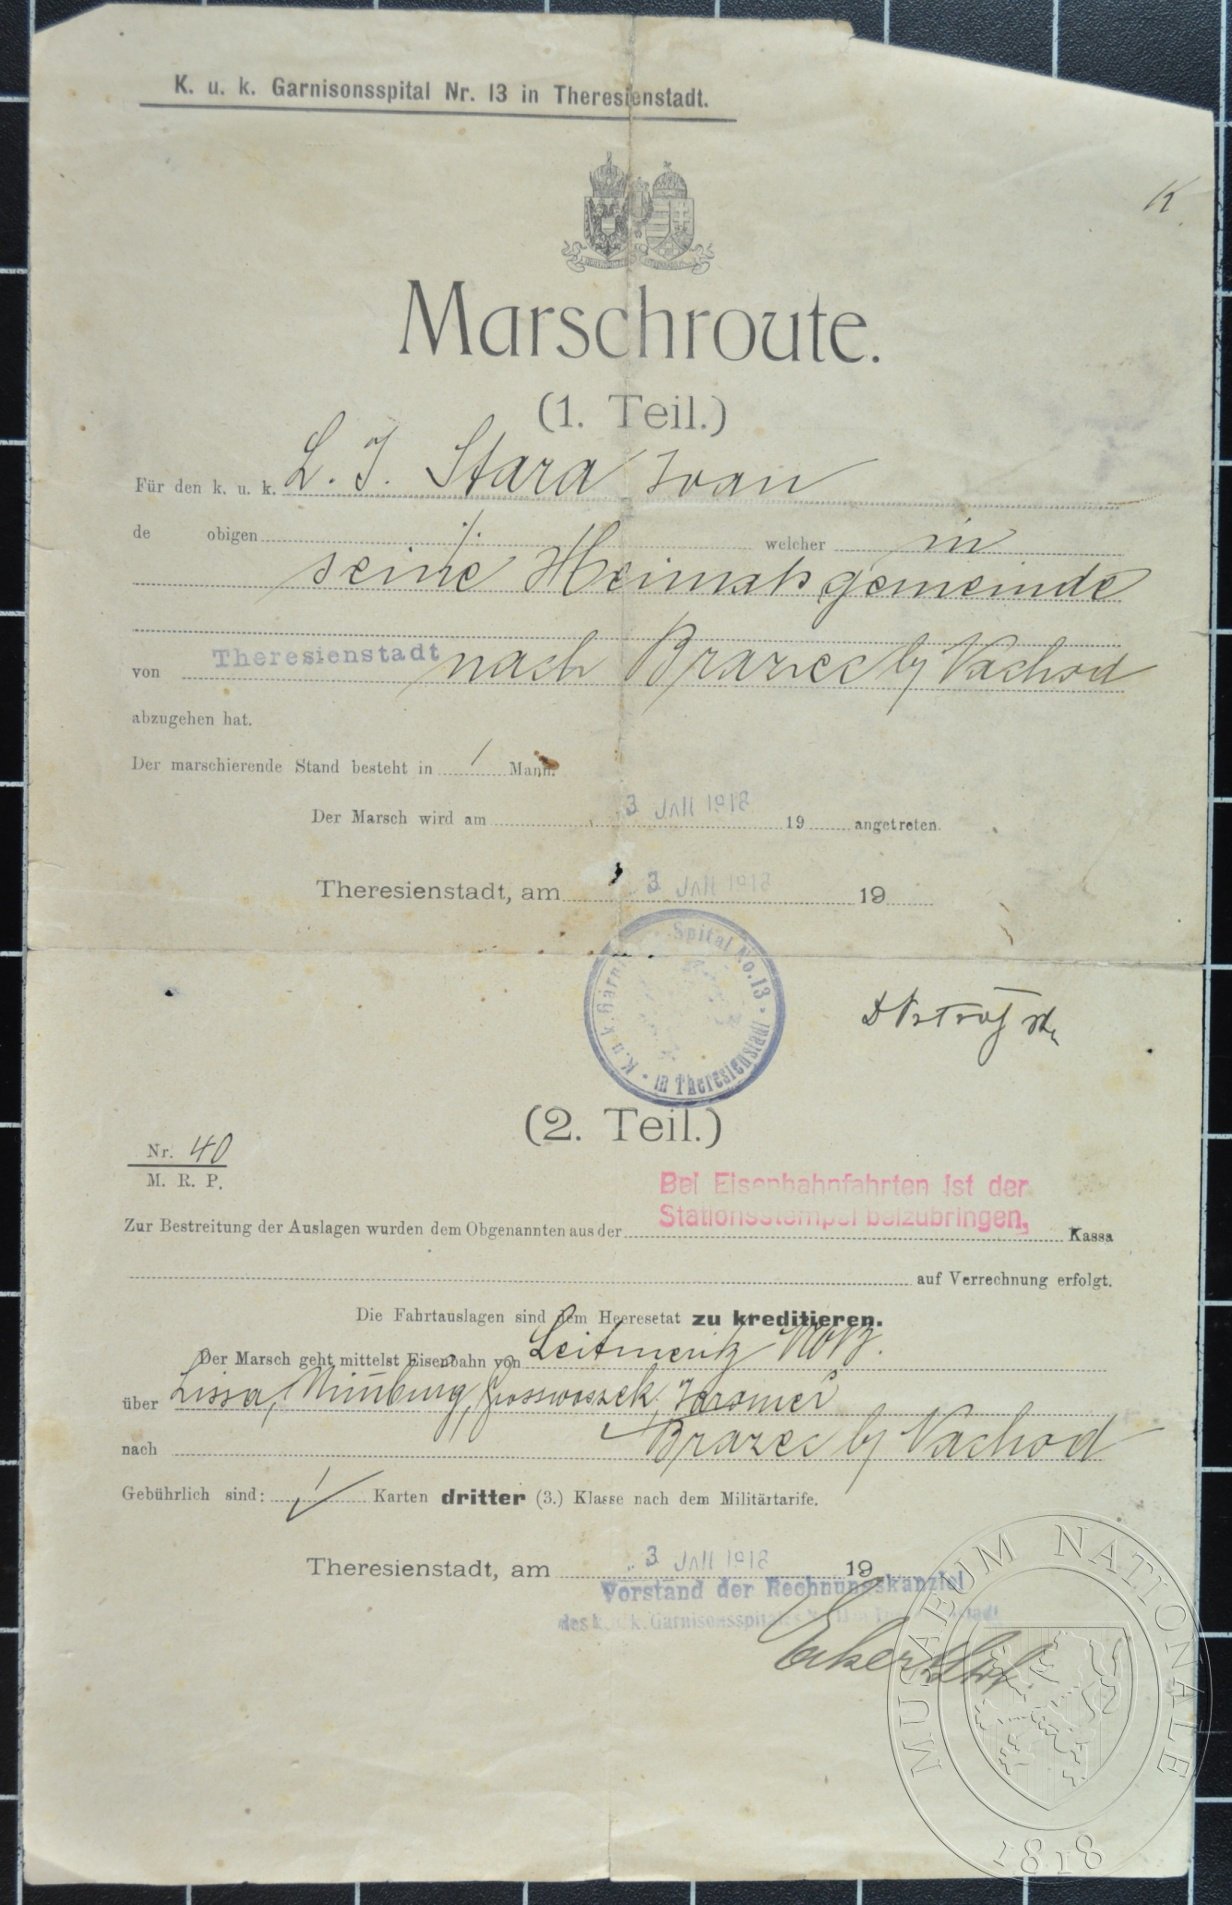 K. u. k. Garnisonsspital Nr. 13 in Theresienstadt.
K
Marschroute.
(1. Teil.)
Für den k. u. k. L. I. Stara Ivan
de obigen ./. welcher in
seine Heimatsgemeinde
von Theresienstadt nach Brazec b/ Nachod
abzugehen hat.
Der marschierende Stand besteht in 1 Mann.
Der Marsch wird am 3 JAN 1918 19 angetreten.
Theresienstadt, am 3 JAN 1918 19
K. u. k. Garni Spital No. 13 in Theresienstadt
(2. Teil.)
Nr. 40
M. R. P.
Bei Eisenbahnfahrten ist der
Stationsstempel beizubringen,
Zur Bestreitung der Auslagen wurden dem Obgenannten aus der Kassa
auf Verrechnung erfolgt.
Die Fahrtauslagen sind dem Heeresetat zu kreditieren.
Der Marsch geht mittelst Eisenbahn von Leitmeritz
über Lissa, Nimburg, Grosswossek, Jaromeř
nach Brazec b/ Nachod
Gebührlich sind: 1 Karten dritter (3.) Klasse nach dem Militärtarife.
Theresienstadt, am 3 JAN 1918 19
Vorstand der Rechnungskanzlei
des k. u. k. Garnisonsspitales
MUSAEUM NATIONALE
1818